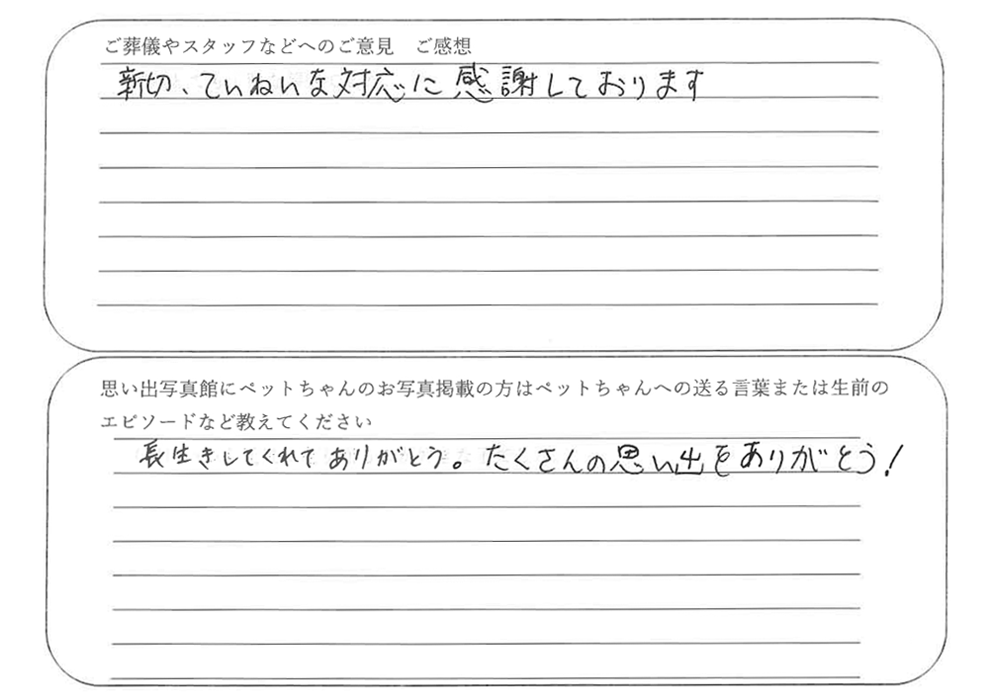 ご葬儀やスタッフなどへのご意見　ご感想
新切、ていねいな対応に感謝しております
思い出写真館にペットちゃんのお写真掲載の方はペットちゃんへの送る言葉または生前の
エピソードなど教えてください
長生きしてくれてありがとう。たくさんの思い出をありがとう!